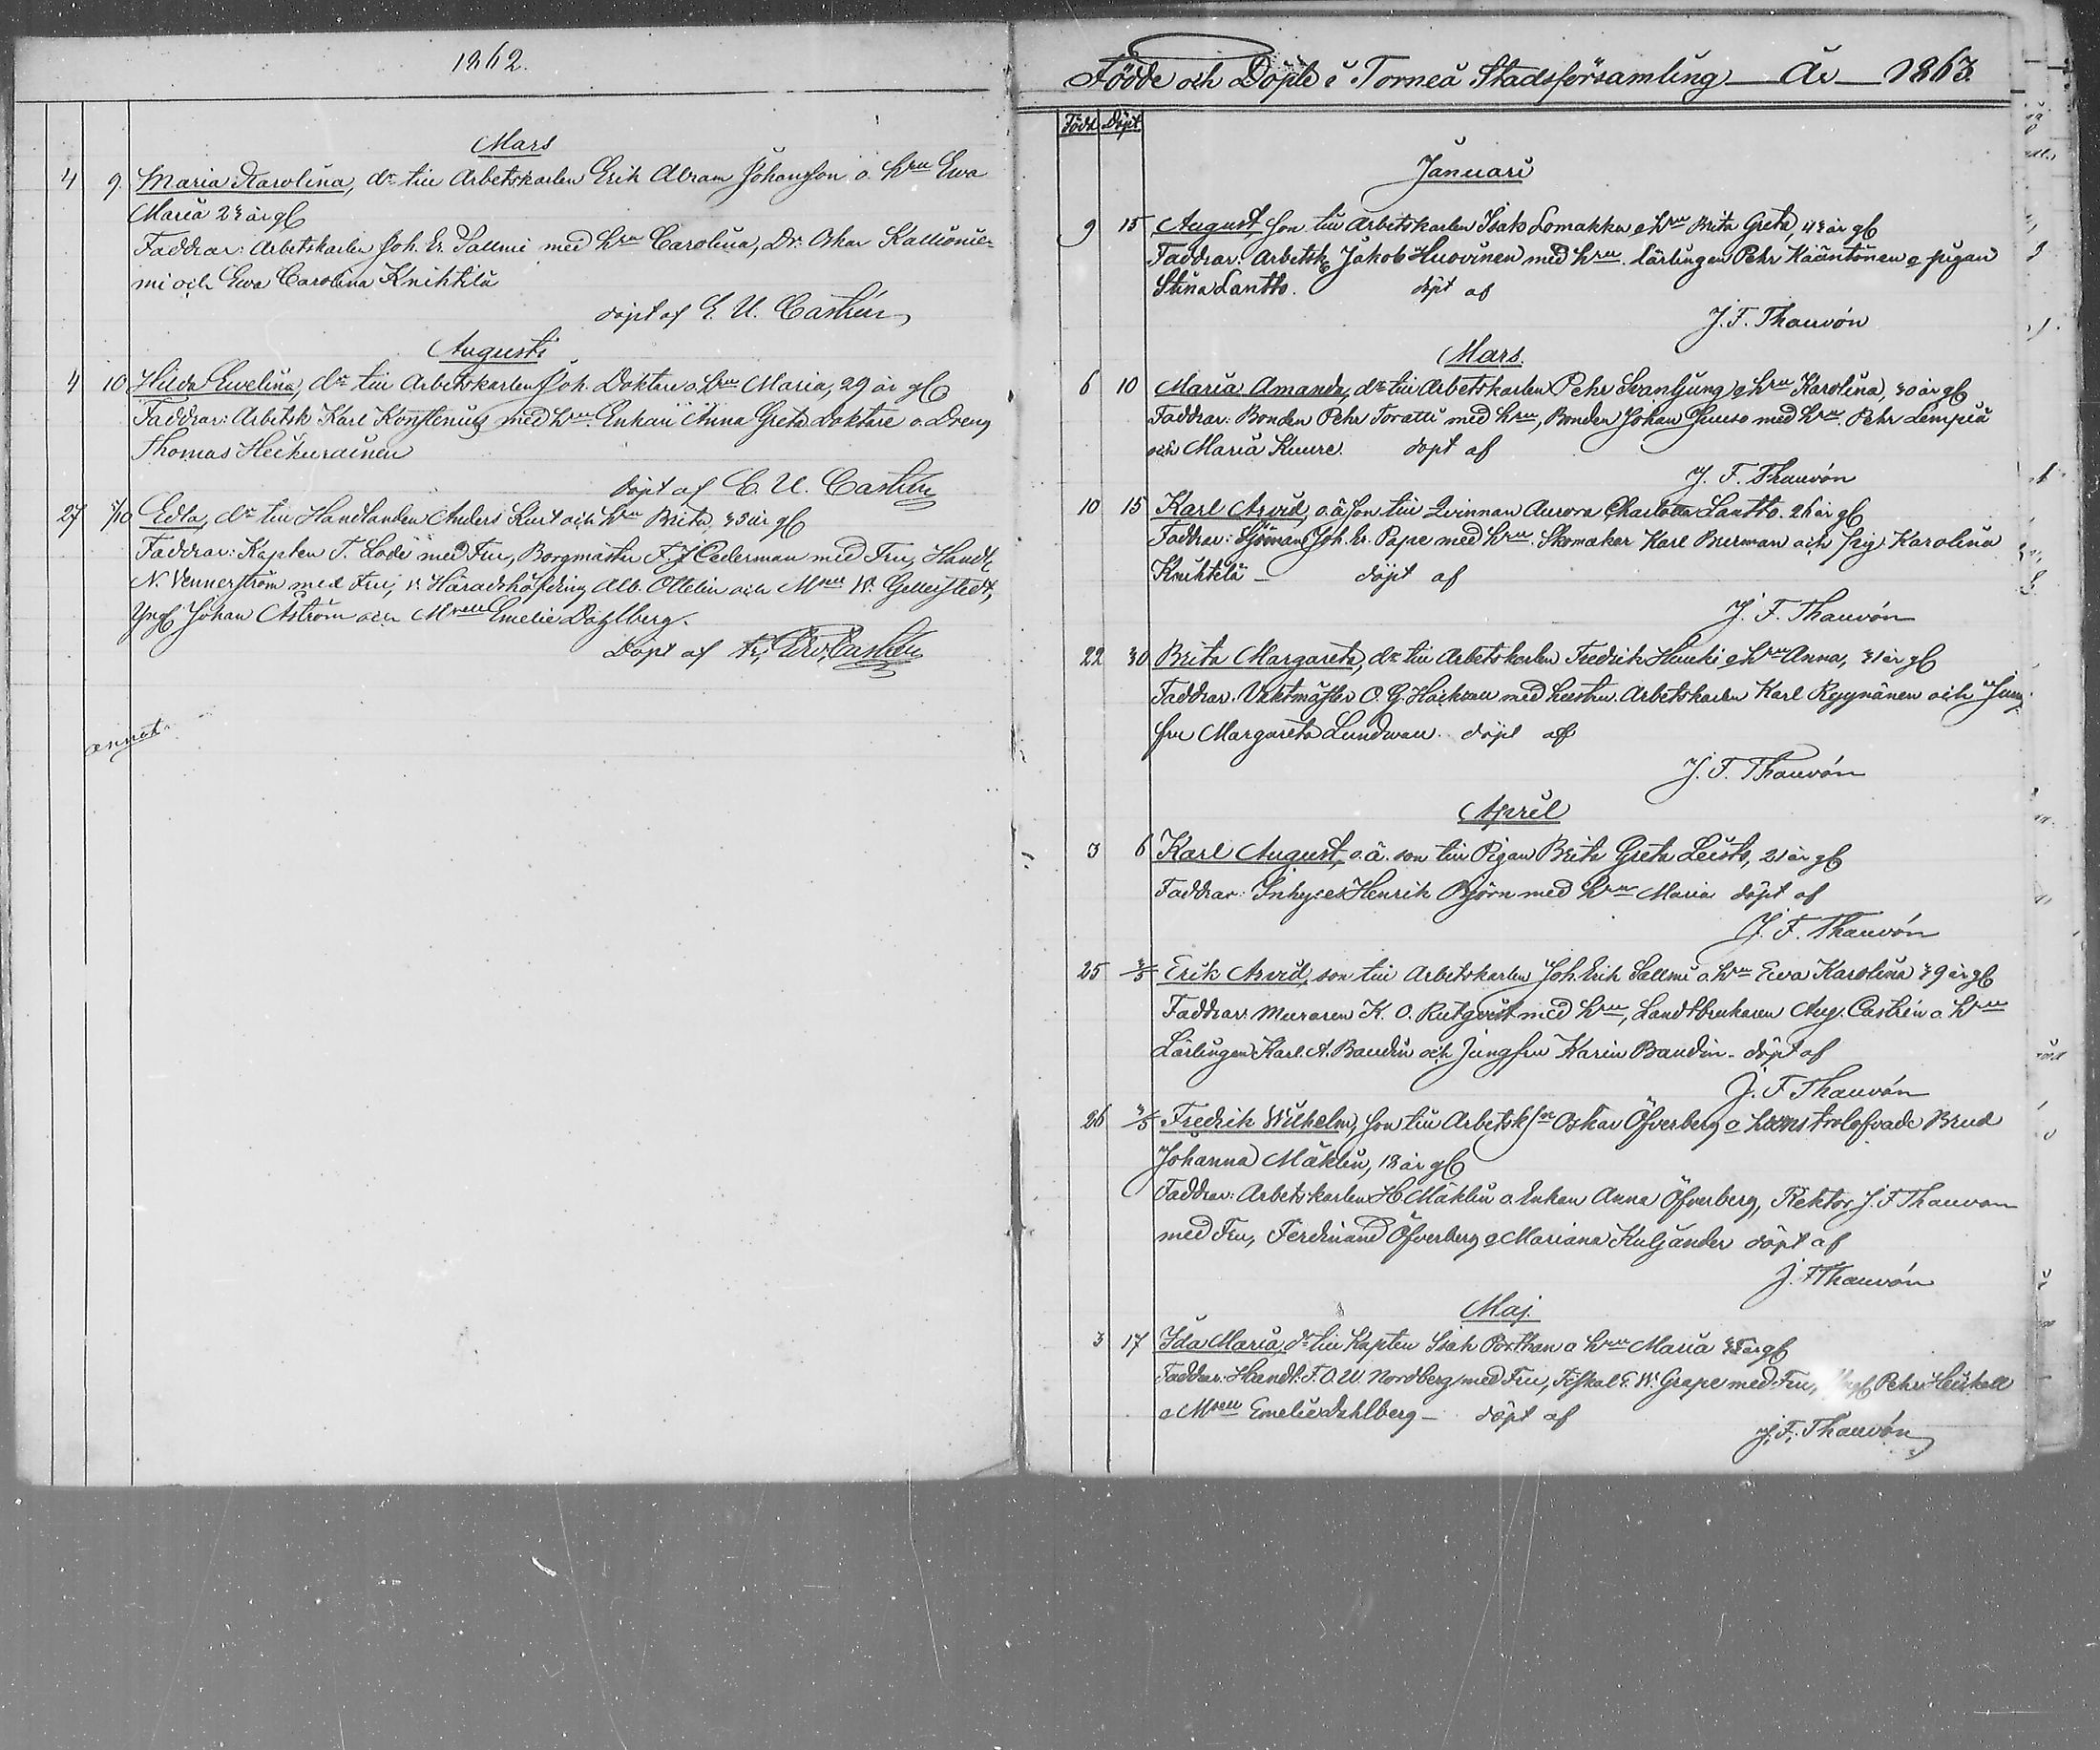 1862.
Mars
4 9. Maria Karolina, dr till Arbetskarlen Erik Abram Johansson o. hru Ewa
Maria 23 år gl
Faddrar: Arbetskarlen Joh. Er. Sallmi med hru Carolina, Dr. Oskar Kallionie-
mi och Ewa Carolina Knihtilä
döpt af E. U. Castrén
Augusti
4 10 Hilda Ewelina, dr till Arbetskarlen Joh. Doktare o. hru Maria, 29 år gl
Faddrar: Arbetsk Karl Konstenius med hru. Enkan Anna Greta Doktare o. Dreng
Thomas Heikurainen
döpt af E. U. Castrén
27 /10 Edla, dr till Handlanden Anders Kurt och hru Brita, 35 år gl
Faddrar: Kapten T. Lode med Fru, Borgmäster F. J. Cederman med Fru, Handl
N. Vennerström med Fru, v. Häradshöfding Alb. Ottelin och Mlle W.
Yngl Johan Åström och Mselle Emelie Dahlberg.
Döpt af Castrén
annat
Födde och Döpte i Torneå Stadsförsamling År 1863.
Född Döpt
Januari
9 15 August, son till Arbetskarlen Isak Lomakka o hru Brita Greta, 43 år gl
Faddrar: Arbetsk Jakob Huovinen med hru. Lärlingen Pehr Kääntönen o pigan
Stina Lantto. döpt af
J. F. Thauvón
Mars.
6 10 Maria Amanda, dr till Arbetskarlen Pehr Svanljung o hru Karolina, 30 år gl
Faddrar: Bonden Pehr Toratti med hru, Bonden Johan Juuso med hru. Pehr Lempiä
och Maria Kuure. döpt af
J. F. Thauvón
10 15 Karl Arvid, o.ä son till Qvinnan Aurora Charlotta Lantto. 26 år gl
Faddrar: Sjöman Joh. Er. Pape med hru. Skomakar Karl Burman och pig Karolina
Knihtilä – döpt af
J. F. Thauvón
22 30 Brita Margareta, dr till Arbetskarlen Fredrik Hauki o hru Anna, 31 år gl
Faddrar. Vaktmäster O. G. Häckman med hustru. Arbetskarlen Karl Ryynänen och Jung-
fru Margareta Lundman. döpt af
J. F. Thauvón
April
3 6 Karl August, o.ä. son till Pigan Brita Greta Leisto, 21 år gl
Faddrar: Inhyses Henrik Björn med hru Maria döpt af
J. F. Thauvón
25 3/5 Erik Arvid, son till Arbetskarlen Joh. Erik Sallmi o. hru Ewa Karolina 39 år gl
Faddrar: Muraren K. O. Rutqvist med hru, Landtbrukaren Aug. Castrén o hru
Lärlingen Karl A. Baudin och Jungfru Karin Baudin. döpt af
J. F. Thauvón
26 3/5 Fredrik Wilhelm, son till Arbetsk Oskar Öfverberg o hans trolofvade Brud
Johanna Mäklin, 18 år gl
Faddrar: Arbetskarlen H Mäklin o. Enkan Anna Öfverberg, Rektor J. F Thauvon
med Fru, Ferdinand Öfverberg o Mariana Kuljander döpt af
J. F Thauvón
Maj.
3 17 Ida Maria, dr till Kapten Isak Porthan o hru Maria år gl
Faddrar: Handl. F. O. U. Nordberg med Fru, Fiskal F. W. Grape med Fru, Yngl Pehr Heiskell
o Mselle Emelie Dahlberg – döpt af
J. F. Thauvón